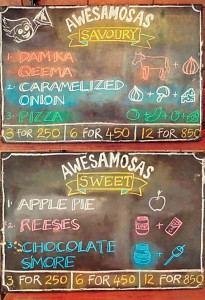 AWESAMOSAS
SAVOURY
1. DAM KA
QEEMA
2. CARAMELIZED
ONION
3. PIZZA
3 FOR 250 | 6 FOR 450 | 12 FOR 850
AWESAMOSAS
SWEET
1. APPLE PIE
2. REESES
3. CHOCOLATE
S'MORE
3 FOR 250 | 6 FOR 450 | 12 FOR 850